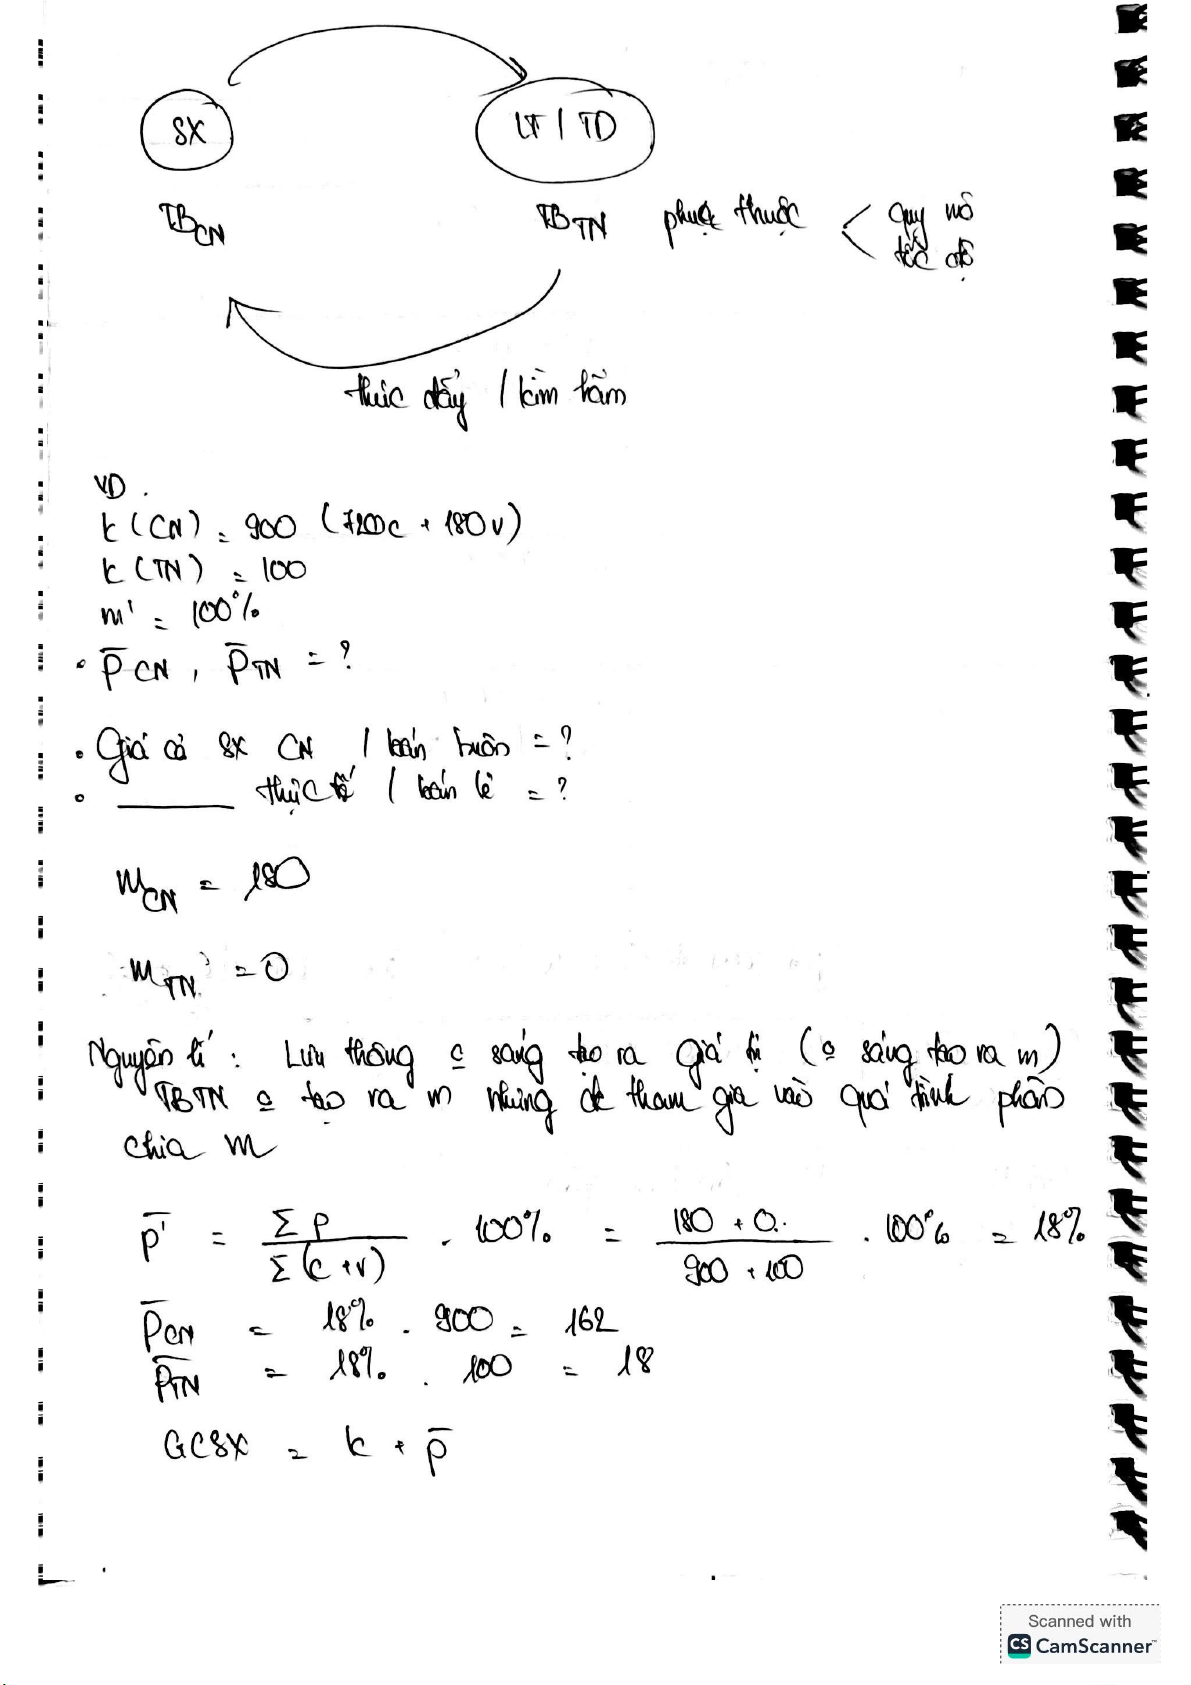 SX
LT / TD
TB CN
TB TN phục thuộc < quy mô
tốc độ
thúc đẩy / kìm hãm
VD .
k (CN) = 900 (720c + 180v)
k (TN) = 100
m' = 100%
• p̄ CN , p̄ TN = ?
• Giá cả SX CN / bán buôn = ?
• ______ thực tế / bán lẻ = ?
m CN = 180
m TN = 0
Nguyên lí : Lưu thông o sáng tạo ra giá trị (o sáng tạo ra m)
TBTN o tạo ra m nhưng đc tham gia vào quá trình phân
chia m
p̄' = Σ p / Σ (c + v) . 100% = 180 + 0 / 900 + 100 . 100% = 18%
p̄ CN = 18% . 900 = 162
p̄ TN = 18% . 100 = 18
GCSX = k + p̄
Scanned with
CS CamScanner